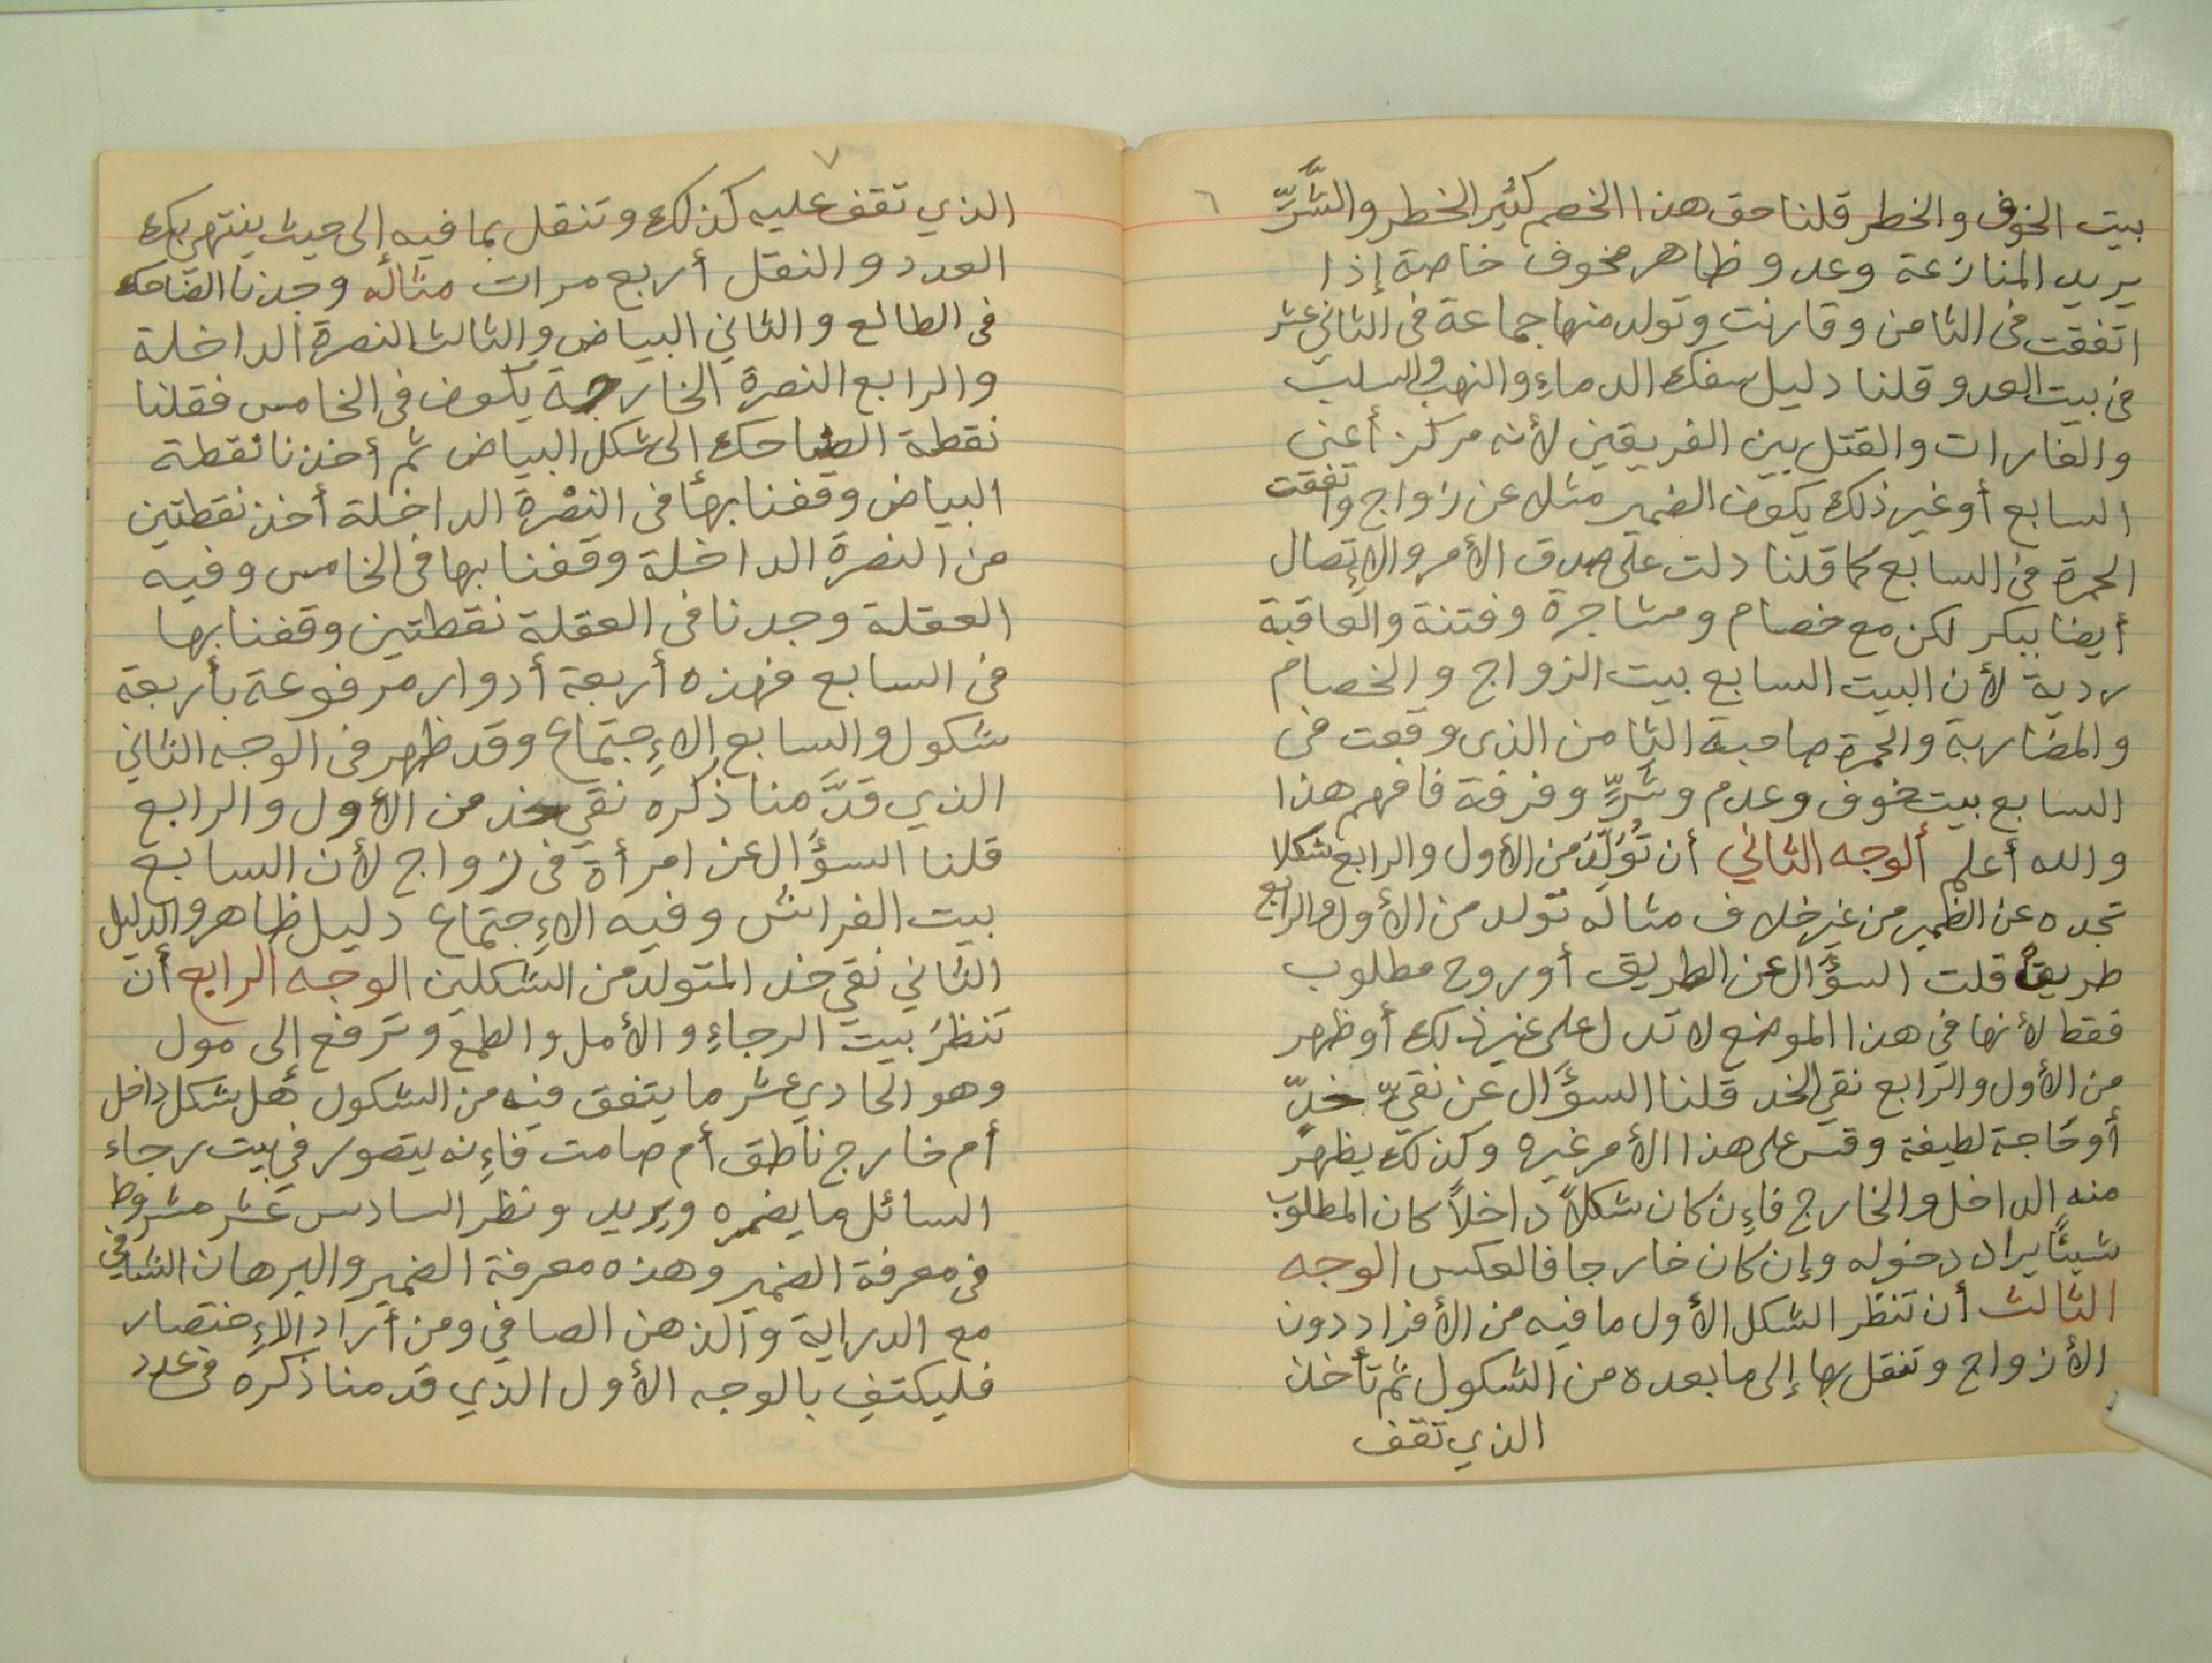 ٦
بيت الخوف والخطر قلنا حق هذا الخصم كثير الخطر والشَّرِّ
يريد المنازعة وعدو ظاهر مخوف خاصة إذا
اتفقت فى الثامن وقارنت وتولد منها جماعة فى الثاني عشر
فى بيت العدو قلنا دليل سفك الدماءِ والنهب والسلب
والغارات والقتل بين الفريقين لأنه مركز أعنى
السابع أو غير ذلك يكون الضمير مثلا عن زواج واتفقت
الحمرة فى السابع كما قلنا دلت على صدق الأمر والاِتصال
أيضا ببكر لكن مع خصام ومشاجرة وفتنة والعاقبة
ردية لأن البيت السابع بيت الزواج والخصام
والمضاربة والحمرة صاحبة الثامن الذى وقعت فى
السابع بيت خوف وعدم وشَرٍّ وفرقة فافهم هذا
والله أعلم ألوجه الثاني أن تُوَلِّدَ من الأول والرابع شكلا
تجده عن الظمير من غير خلاف مثاله تولد من الأول والرابع
طريقٌ قلت السؤال عن الطريق أو روح مطلوب
فقط لأنها فى هذا الموضع لا تدل على غير ذلك أو ظهر
من الأول والرابع نقي الخد قلنا السؤال عن نقيِّ خدٍّ
أو حاجة لطيفة وقس على هذا الأمر غيره وكذلك يظهر
منه الداخل والخارج فاءِن كان شكلاً داخلاً كان المطلوب
شيئًا يراد دخوله وإن كان خارجا فالعكس الوجه
الثالث أن تنظر الشكل الأول ما فيه من الأفراد دون
الأزواج وتنقل بها إلى ما بعده من الشكول ثم تأخذ
الذي تقف
٧
الذي تقف عليه كذلك وتنقل بما فيه إلى حيث ينتهي بك
العدد والنقل أربع مرات مثاله وجدنا الضاحك
فى الطالع والثاني البياض والثالث النصرة الداخلة
والرابع النصرة الخارجة يكون فى الخامس فقلنا
نقطة الضاحك الى شكل البياض ثم أخذنا نقطة
البياض وقفنا بها فى النصْرة الداخلة أخذ نقطتين
من النصرة الداخلة وقفنا بها فى الخامس وفيه
العقلة وجدنا فى العقلة نقطتين وقفنا بها
فى السابع فهذه أربعة أدوار مرفوعة بأربعة
شكول والسابع الاءِجتماع وقد ظهر فى الوجه الثاني
الذي قدَّمنا ذكره نقي خد من الأول والرابع
قلنا السؤال عن امرأة فى زواج لأن السابع
بيت الفراش وفيه الاءِجتماع دليل ظاهر والدليل
الثاني نقي خد المتولد من الشكلين الوجه الرابع أن
تنظرَ بيت الرجاءِ والأمل والطمع وترفع إلى مول
وهو الحادي عشر ما يتفق فيه من الشكول هل شكل داخل
أم خارج ناطق أم صامت فاءِنه يتصور في بيت رجاء
السائل ما يضمره ويريد ونظر السادس عشر مشروط
فى معرفة الضمير وهذه معرفة الضمير والبرهان الشافي
مع الدراية والذهن الصافي ومن أراد الاءِختصار
فليكتفِ بالوجه الأول الذي قدمنا ذكره فى عدد